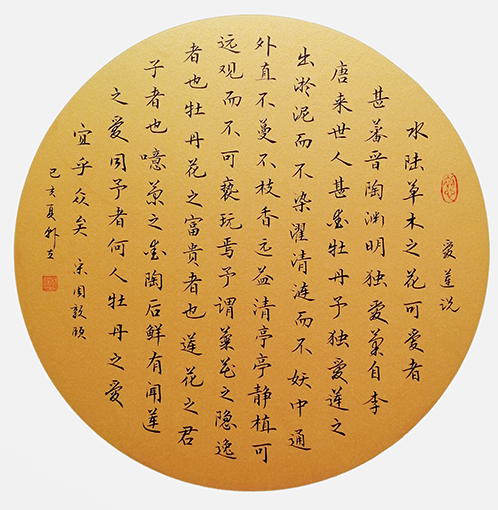 爱莲说
水陆草木之花可爱者
甚蕃晋陶渊明独爱菊自李
唐来世人甚爱牡丹予独爱莲之
出淤泥而不染濯清涟而不妖中通
外直不蔓不枝香远益清亭亭静植可
远观而不可亵玩焉予谓菊花之隐逸
者也牡丹花之富贵者也莲花之君
子者也噫菊之爱陶后鲜有闻莲
之爱同予者何人牡丹之爱
宜乎众矣 宋周敦颐
己亥夏